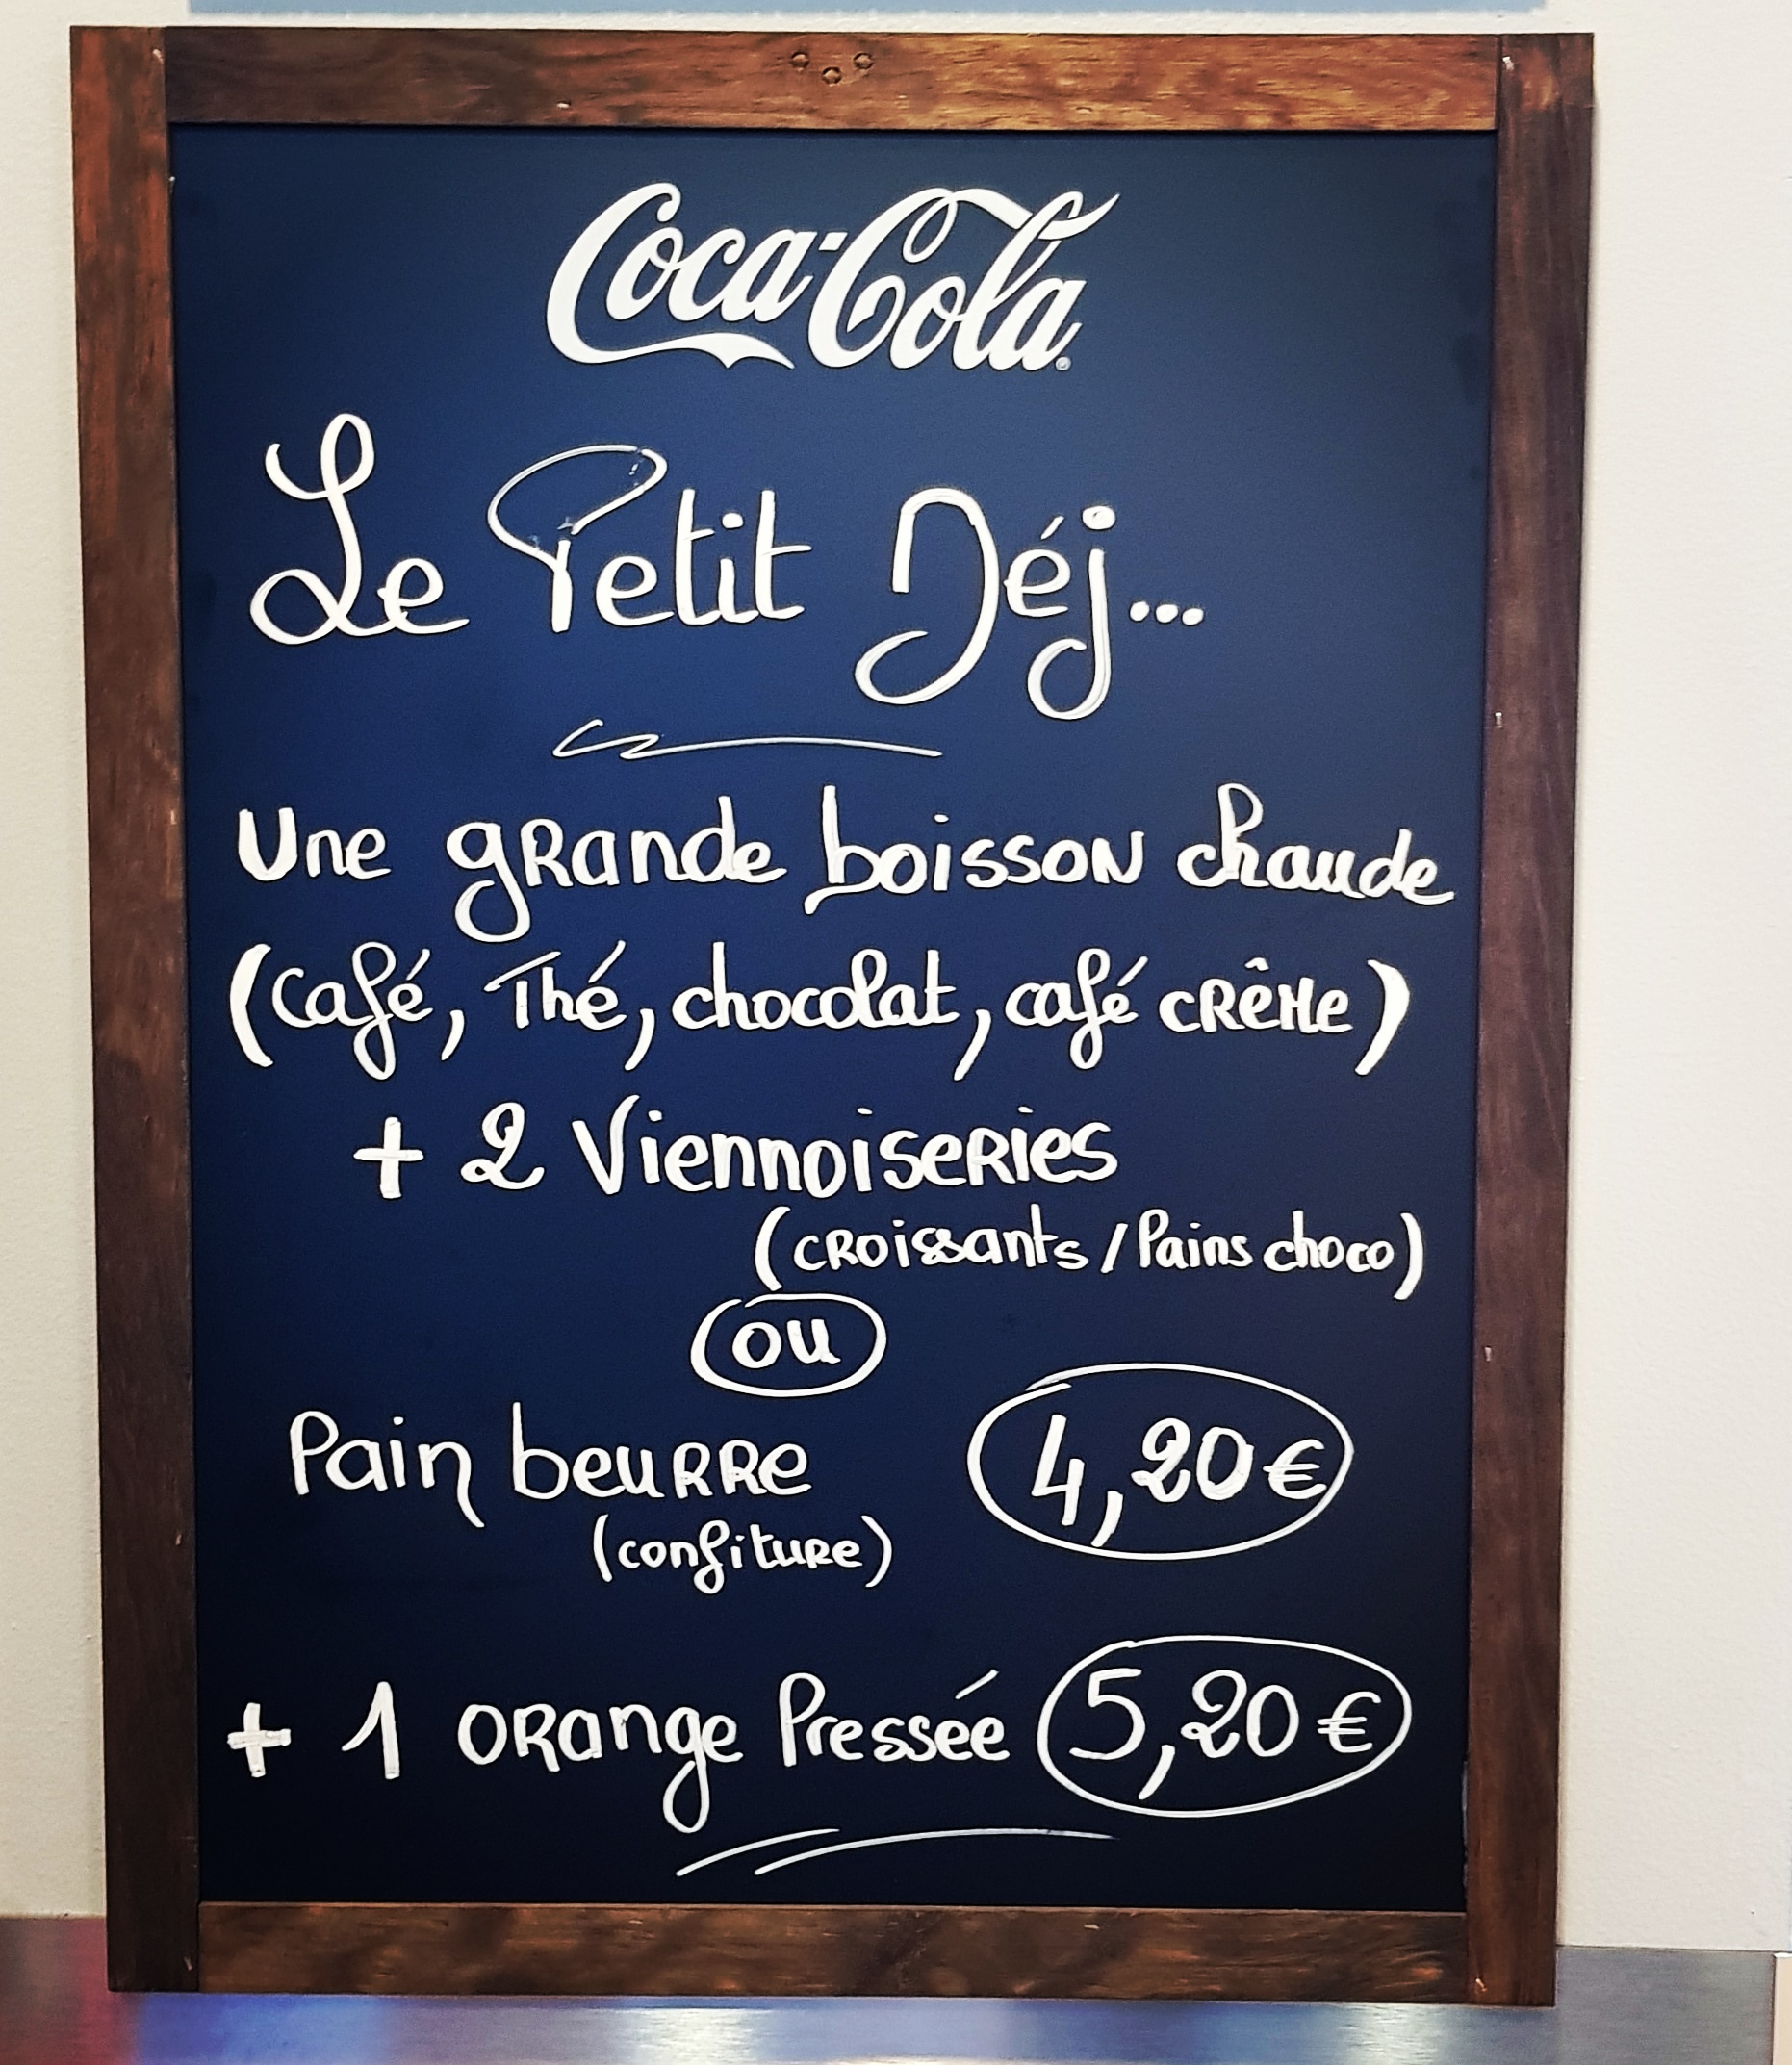 Coca-Cola
Le Petit Déj...
Une grande boisson chaude
(Café, Thé, chocolat, café crème)
+ 2 Viennoiseries
(croissants / Pains choco)
ou
Pain beurre 4,20€
(confiture)
+ 1 orange Pressée 5,20€